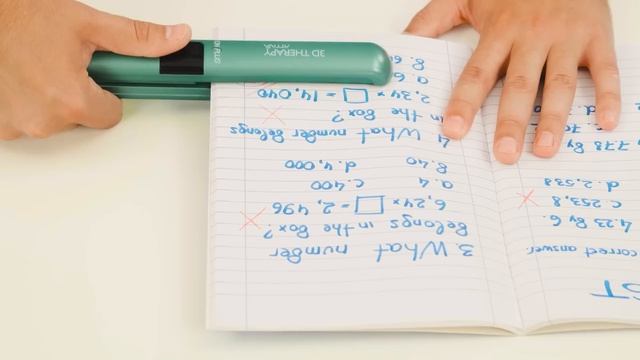 ST
correct answer.
4,23 By 6.
c. 253,8
d. 2,538
778 By
c. 70
d.
3. What number
Belongs in the Box?
6,24 x = 2,496
a. 4 c. 400
B. 40 d. 4,000
4 What number Belongs
in the Box?
2,34 x = 14,040
a. 6
B. 6
3D THERAPY
ION PLUS